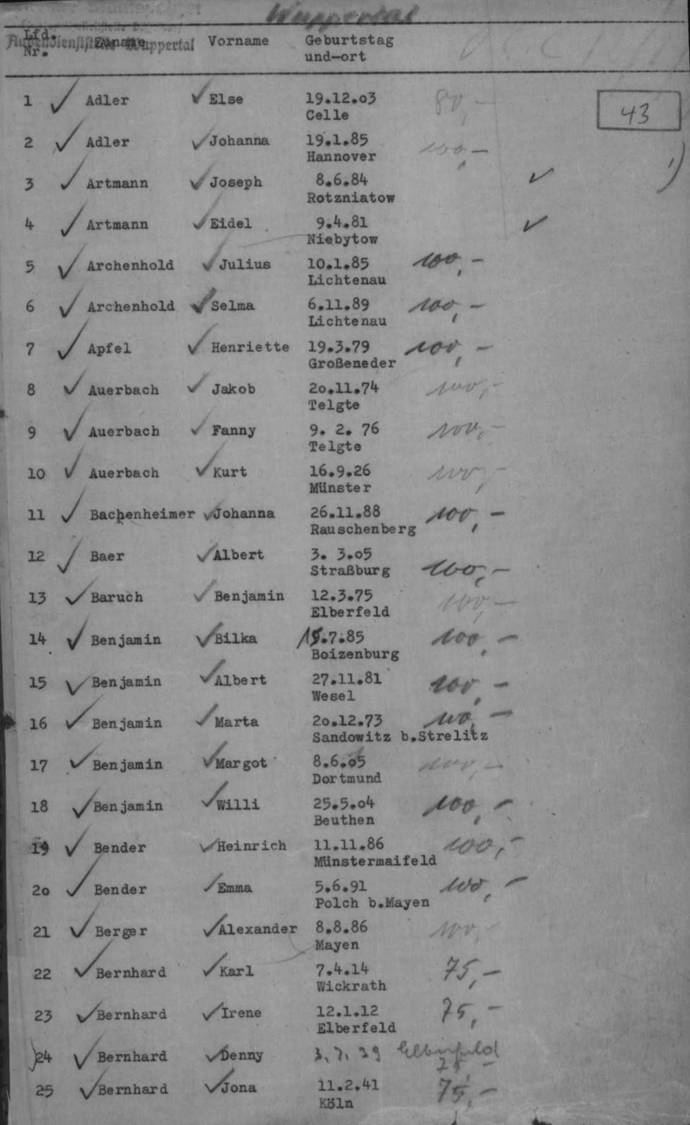 Wuppertal
Außendienststelle Wuppertal
Lfd. Nr. Zuname Vorname Geburtstag und-ort
43
1 Adler Else 19.12.03 80,-
Celle
2 Adler Johanna 19.1.85 100,-
Hannover
3 Artmann Joseph 8.6.84
Rotzniatow
4 Artmann Eidel 9.4.81
Niebytow
5 Archenhold Julius 10.1.85 100,-
Lichtenau
6 Archenhold Selma 6.11.89 100,-
Lichtenau
7 Apfel Henriette 19.3.79 100,-
Großeneder
8 Auerbach Jakob 20.11.74 100,-
Telgte
9 Auerbach Fanny 9. 2. 76 100,-
Telgte
10 Auerbach Kurt 16.9.26 100,-
Münster
11 Bachenheimer Johanna 26.11.88 100,-
Rauschenberg
12 Baer Albert 3. 3.05
Straßburg 100,-
13 Baruch Benjamin 12.3.75 100,-
Elberfeld
14 Benjamin Bilka 15.7.85 100,-
Boizenburg
15 Benjamin Albert 27.11.81 100,-
Wesel
16 Benjamin Marta 20.12.73 100,-
Sandowitz b.Strelitz
17 Benjamin Margot 8.6.05 100,-
Dortmund
18 Benjamin Willi 25.5.04 100,-
Beuthen
19 Bender Heinrich 11.11.86 100,-
Münstermaifeld
20 Bender Emma 5.6.91 100,-
Polch b.Mayen
21 Berger Alexander 8.8.86 100,-
Mayen
22 Bernhard Karl 7.4.14 75,-
Wickrath
23 Bernhard Irene 12.1.12 75,-
Elberfeld
24 Bernhard Denny 3.7.39 Elberfeld
75,-
25 Bernhard Jona 11.2.41 75,-
Köln